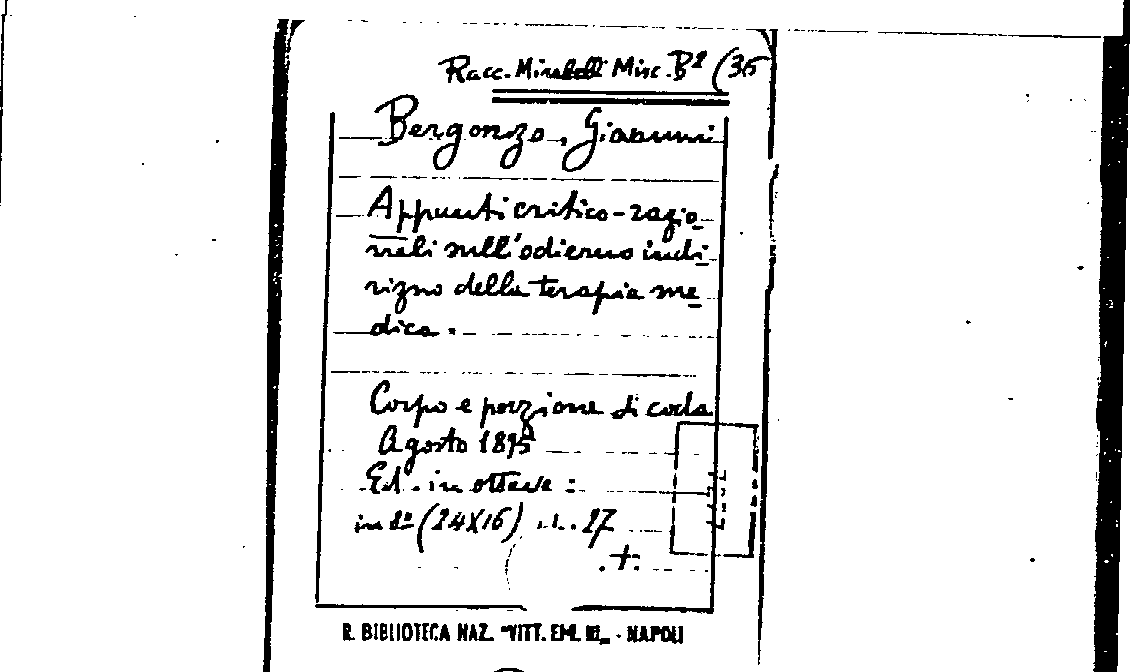 Racc. Mirabelli Misc. B² (35
Bergonzo, Giovanni
Appunti critico-razio
nali sull'odierno indi
rizzo della terapia me
dica.
Corpo e porzione di coda
Agosto 1895
Ed. in ottave :
in 8° (24X16) 27
R. BIBLIOTECA NAZ. "VITT. EM. III„ - NAPOLI